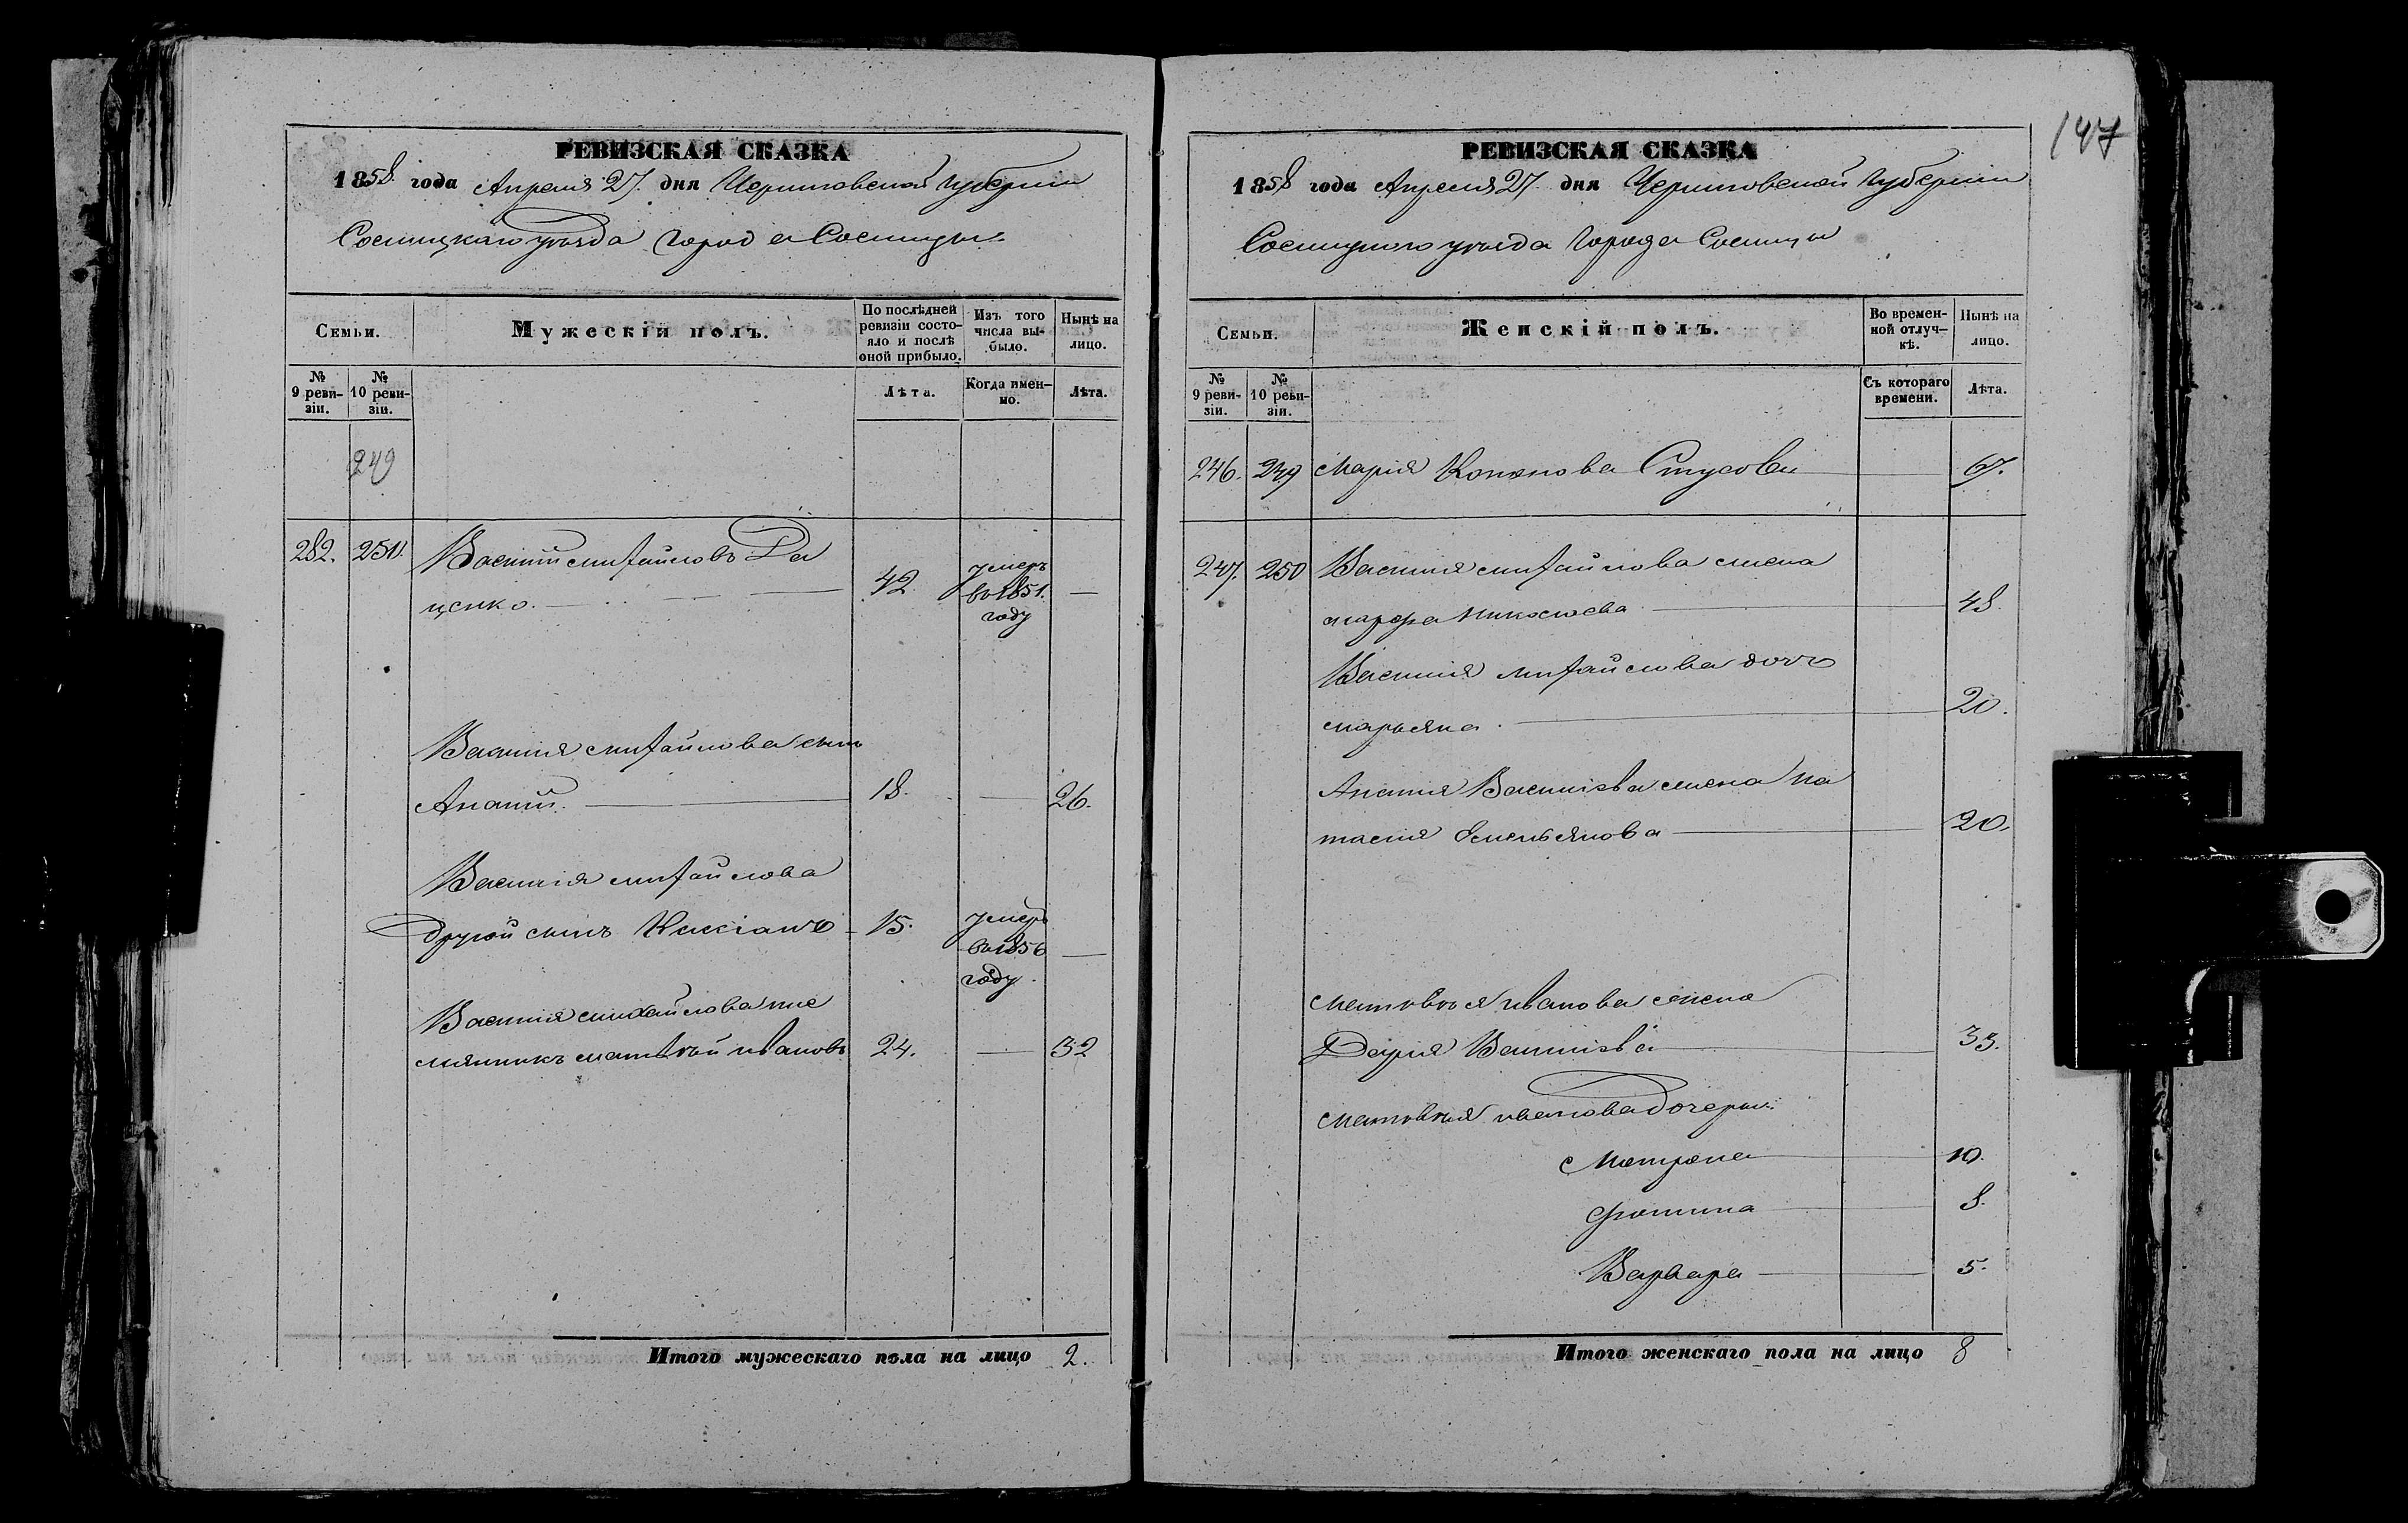 147
РЕВИЗСКАЯ СКАЗКА
1858 года Апреля 27. дня Черниговской Губернии
Сосницкаго уѣзда Города Сосницы
Семьи.
Мужескій полъ.
По послѣдней ревизіи состояло и послѣ оной прибыло.
Изъ того числа выбыло.
Нынѣ на лицо.
№ 9 ревизіи.
№ 10 ревизіи.
Лѣта.
Когда именно.
Лѣта.
249
282. 250. Василій Михайловъ Да
ценко. 42 умеръ в 1851. году —
Василія Михайлова сынъ
Ананій. 18. — 26.
Василія Михайлова
другой сынъ 15. умеръ в 1856 году. —
Василія Михайлова пле
мянникъ Матвѣй Ивановъ 24. — 32
Итого мужескаго пола на лицо 2.
РЕВИЗСКАЯ СКАЗКА
1858 года Апреля 27 дня Черниговской Губерніи
Сосницкого уѣзда Города Сосницы
Семьи.
Женскій полъ.
Во временной отлучкѣ.
Нынѣ на лицо.
№ 9 ревизіи.
№ 10 ревизіи.
Съ котораго времени.
Лѣта.
246. 249 Марія
247. 250 Василия Михайлова жена
Марфа Николаева 48.
Василия Михайлова дочь
Марьяна. 20.
Анания Васильева жена На
тасия Емельянова 20.
Матвѣя Иванова жена
Дарія Васильева 33.
Матвѣя Иванова дочери:
Матрона 10.
Фотина 8.
Варвара 5.
Итого женскаго пола на лицо 8